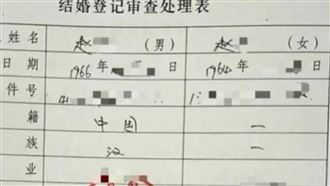 结婚登记审查处理表
姓名 赵 （男） 赵 （女）
日期 1966年 日 1964 日
件号 4 1
籍 中国 一
族 汉 一
业